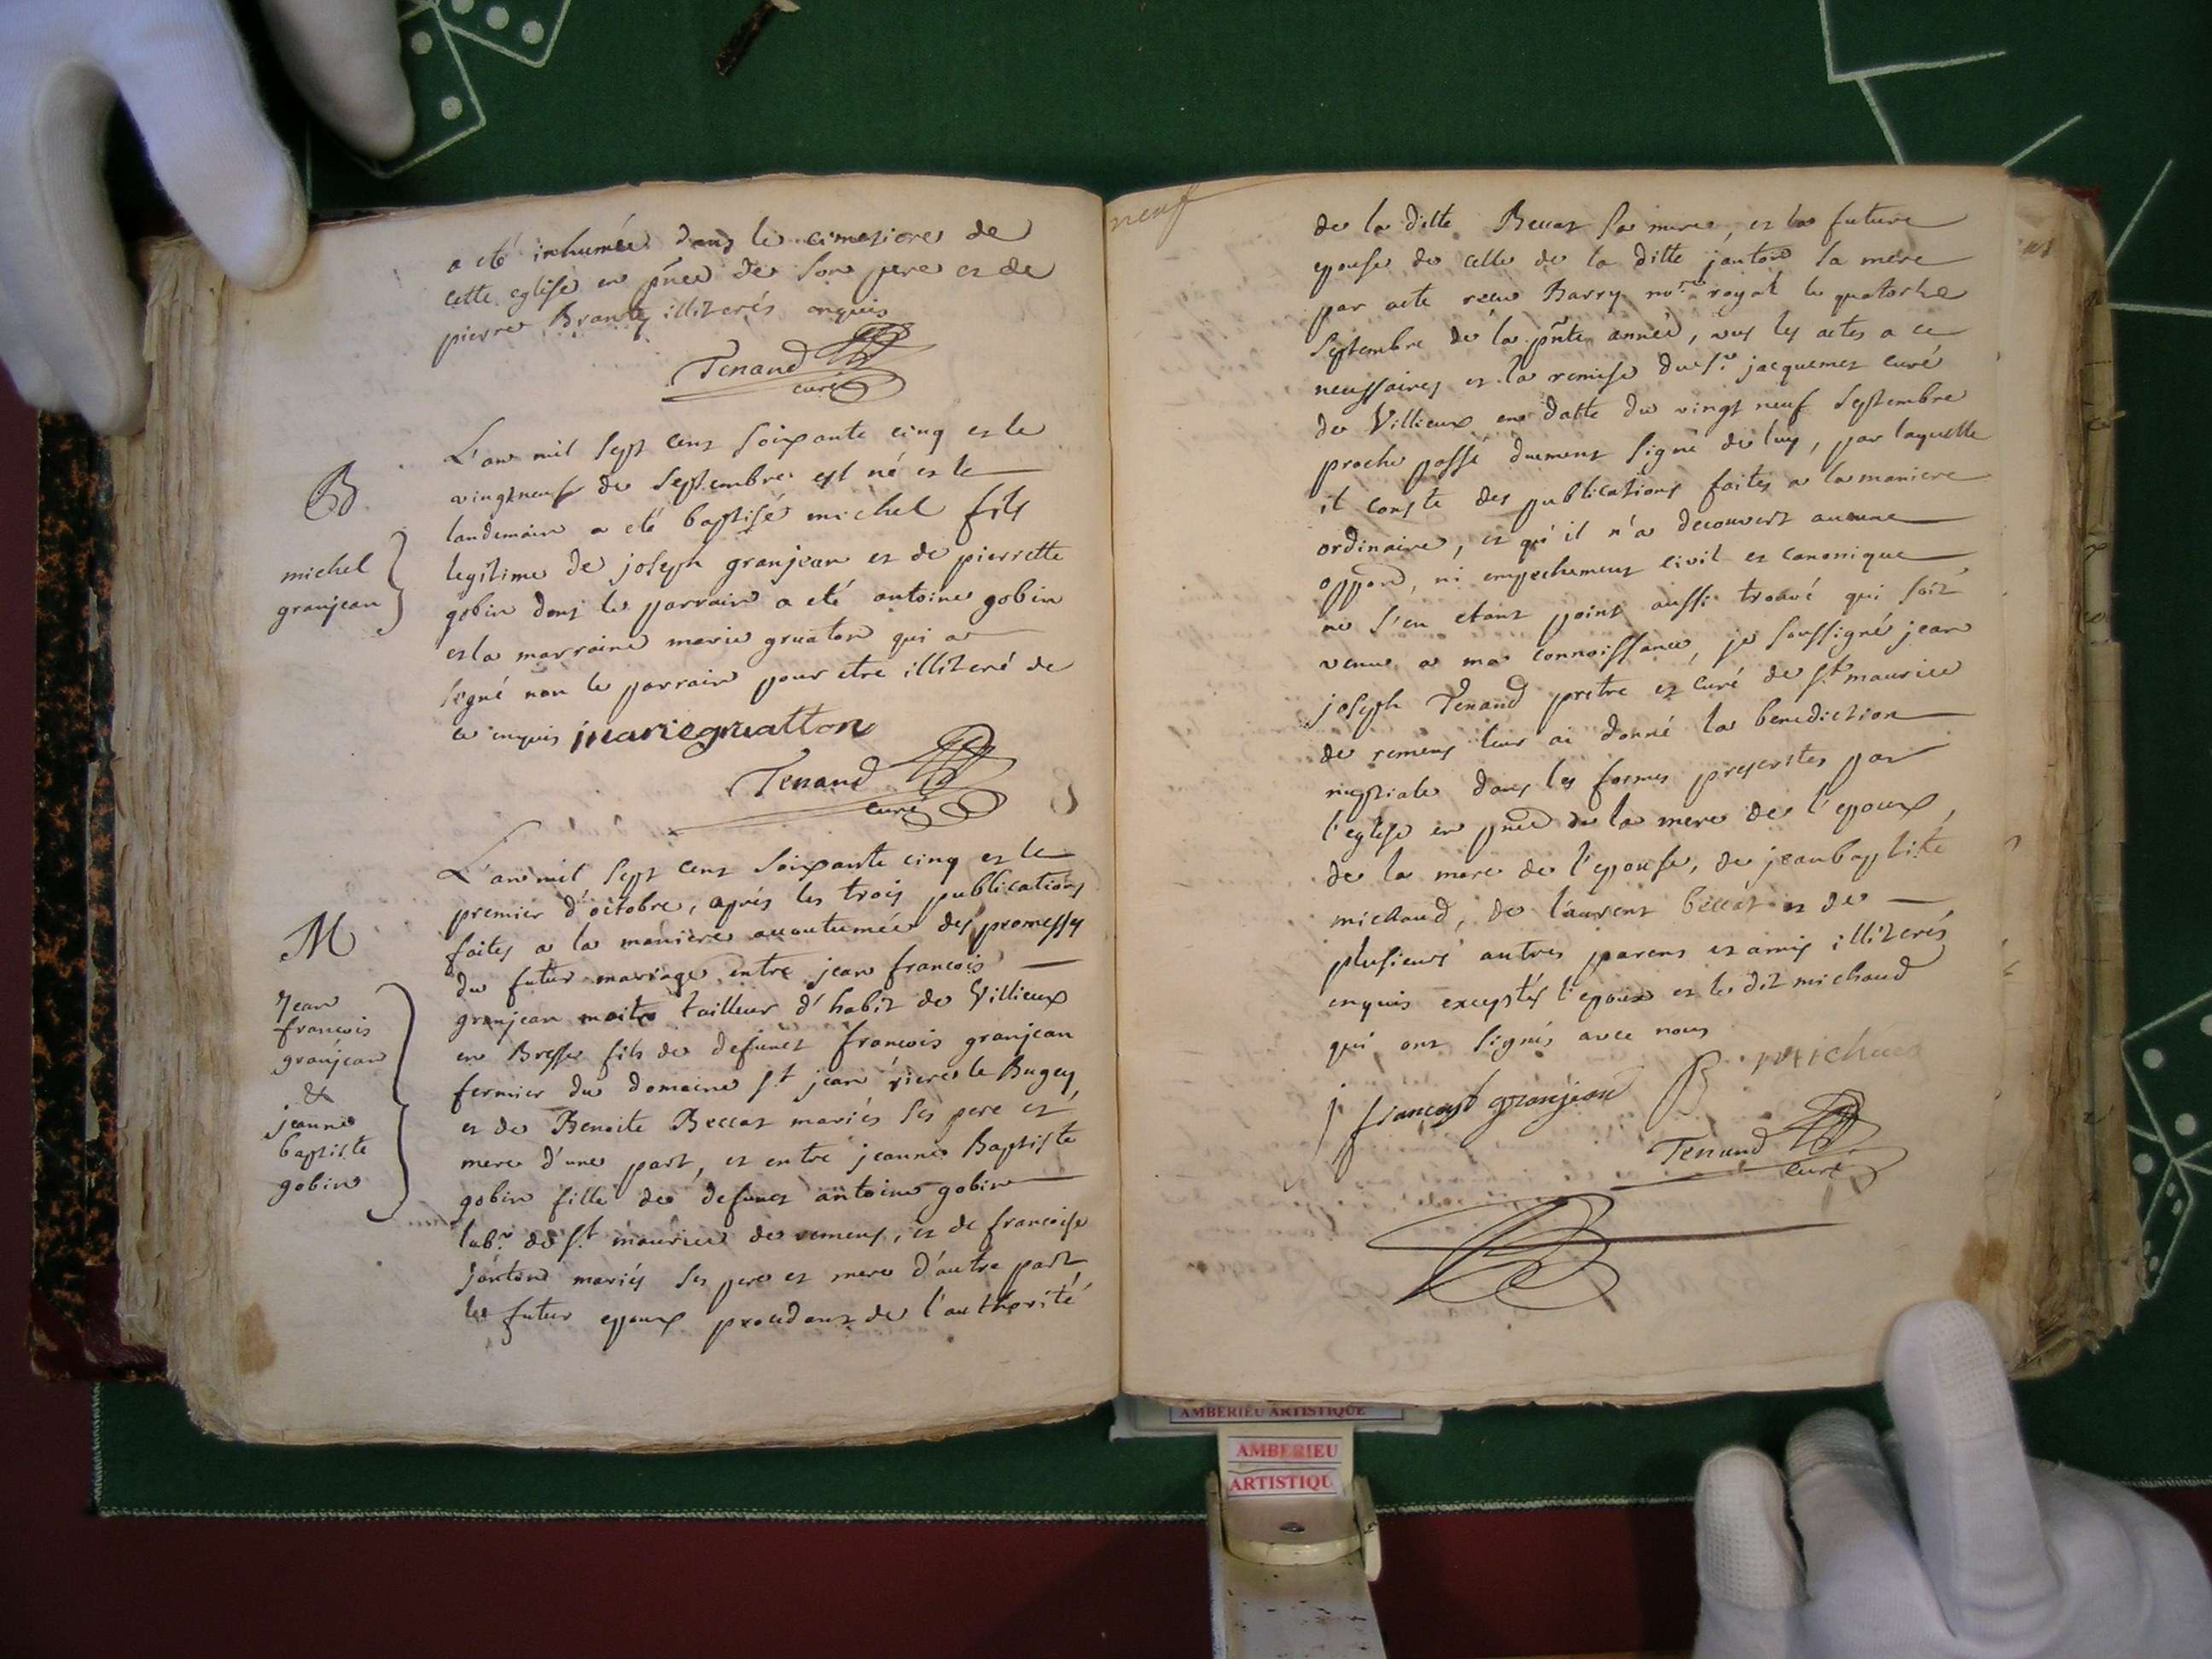 a eté inhumée dans le cimetiere de
cette eglise en pñce de son pere et de
pierre Brante illiterés enquis
Tenand
curé
B
michel
granjean
L'an mil sept cent soixante cinq et le
vingtneuf de septembre est né et le
landemain a eté baptisé michel fils
legitime de joseph granjean et de pierrette
gobin dont le parrain a eté antoine gobin
et la marraine marie gruaton qui a
signé non le parrain pour etre illiteré de
ce enquis mariegruatton
Tenand
curé
M
Jean
francois
granjean
&
jeanne
baptiste
gobin
L'an mil sept cent soixante cinq et le
premier d'octobre, aprés les trois publications
faites a la maniere accoutumée des promesses
du futur mariage entre jean francois
granjean maitre tailleur d'habit de Villieux
en Bresse fils de defunct francois granjean
fermier du domaine st jean riere le Bugey,
et de Benoite Beccat mariés ses pere et
mere d'une part, et entre jeanne Baptiste
gobin fille de defunct antoine gobin
labr. de st maurice de remens, et de francoise
janton mariés ses pere et mere d'autre part
le futur epoux procedant de l'authorité
neuf
de la ditte Beccat sa mere, et la future
epouse de celle de la ditte janton sa mere
par acte recu Barry nore. royal le quatorze
septembre de la pñte année, vus les actes a ce
necessaires et la remise du sr. jacquemet curé
de Villieux en datte du vingt neuf septembre
proche passé duement signé de luy, par laquelle
il conste des publications faites a la maniere
ordinaire, et qu'il n'a decouvert aucune
oppond, ni empechement civil et canonique
ne s'en etant point aussi trouvé qui soit
venu a ma connoissance, je soussigné jean
joseph Tenand pretre et curé de st maurice
de remens leur ai donné la benediction
nuptiale dans les formes prescrites par
l'eglise en pnce de la mere de l'epoux,
de la mere de l'epouse, de jean baptiste
michaud, de laurent beccat et de
plusieurs autres parens et amis illiterés
enquis exceptés l'epoux et le dit michaud
qui ont signés avec nous
j francoys granjean B michaud
Tenand
curé
AMBERIEU ARTISTIQUE
AMBERIEU
ARTISTIQU